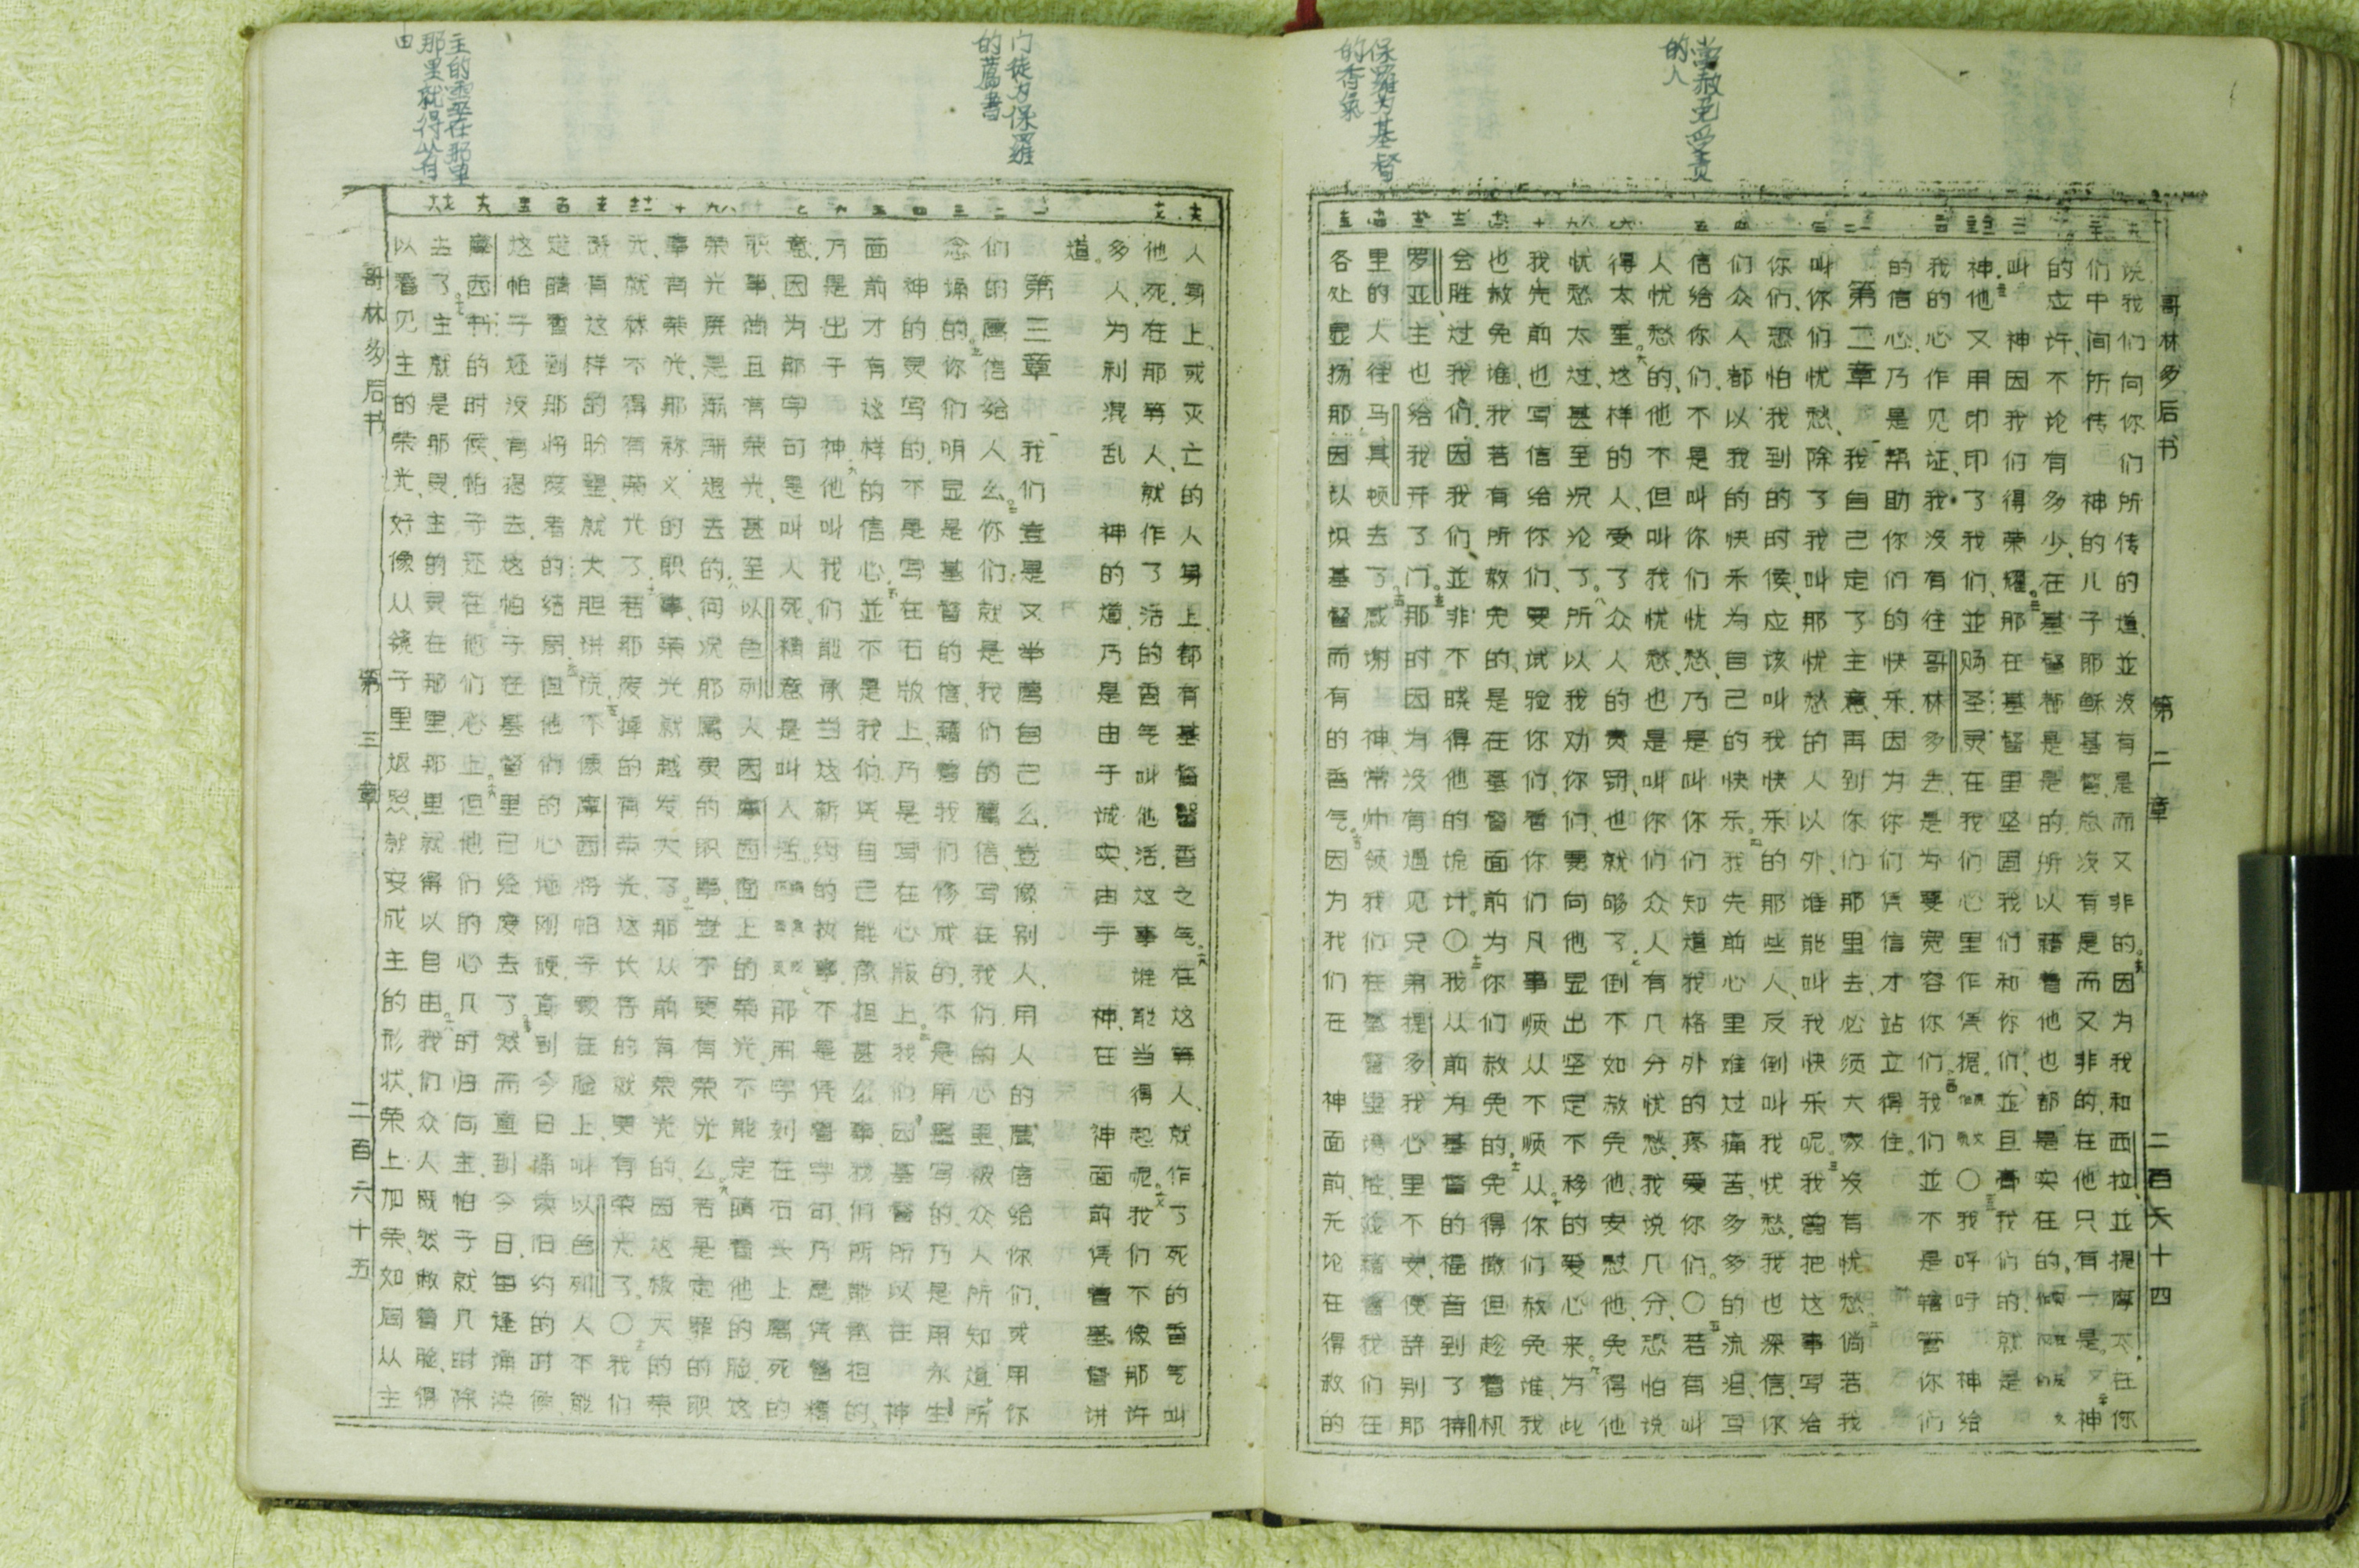 当赦免受责
的人
保羅为基督
的香氣
哥林多后书 第二章 二百六十四
说我们向你们所传的道、並沒有是而又非的。因为我和西拉、並提摩太、在你
们中间所传 神的儿子耶稣基督、总沒有是而又非的、在他只有一是。 神
的应许、不论有多少、在基督都是是的、所以藉着他也都是实在的、
叫 神因我们得荣耀。那在基督里坚固我们和你们、並且膏我们的、就是
神、他又用印印了我们、並赐圣灵在我们心里作凭据。〇我呼吁 神给
我的心作见证、我沒有往哥林多去、是为要宽容你们。我们並不是辖管你们
的信心、乃是帮助你们的快乐、因为你们凭信才站立得住。
第二章 我自己定了主意、再到你们那里去、必须大家沒有忧愁、倘若我
叫你们忧愁、除了我叫那忧愁的人以外、谁能叫我快乐呢。我曾把这事写给
你们、恐怕我到的时候、应该叫我快乐的那些人、反倒叫我忧愁、我也深信、你
们众人都以我的快乐为自己的快乐。我先前心里难过痛苦、多多的流泪、写
信给你们、不是叫你们忧愁、乃是叫你们知道我格外的疼爱你们。〇若有叫
人忧愁的、他不但叫我忧愁、也是叫你们众人有几分忧愁、我说几分、恐怕说
得太重。这样的人、受了众人的责罚、也就够了、倒不如赦免他、安慰他、免得他
忧愁太过、甚至沉沦了。所以我劝你们、要向他显出坚定不移的爱心来。为此
我先前也写信给你们、要试验你们、看你们凡事顺从不顺从。你们赦免谁、我
也赦免谁、我若有所赦免的、是在基督面前为你们赦免的、免得撒但趁着机
会胜过我们、因我们並非不晓得他的诡计。〇我从前为基督的福音到了特
罗亚、主也给我开了门。那时因为沒有遇见兄弟提多、我心里不安、便辞别那
里的人往马其顿去了。感谢 神、常帅领我们在基督里夸胜、並藉着我们在
各处显扬那因认识基督而有的香气。因为我们在 神面前、无论在得救的
门徒为保羅
的薦書
主的靈在那里
那里就得以自
由
人身上、或灭亡的人身上、都有基督馨香之气。在这等人、就作了死的香气叫
他死、在那等人、就作了活的香气叫他活、这事谁能当得起呢。我们不像那许
多人、为利混乱 神的道、乃是由于诚实、由于 神、在 神面前凭着基督讲
道。
第三章 我们豈是又举薦自己么、豈像别人、用人的薦信给你们、或用你
们的薦信给人么。你们就是我们的薦信、写在我们的心里、被众人所知道所
念诵的。你们明显是基督的信、藉着我们修成的、不是用墨写的、乃是用永生
神的灵写的、不是写在石版上、乃是写在心版上。我们因基督所以在 神
面前才有这样的信心。並不是我们凭自己能承担甚么事、我们所能承担的、
乃是出于 神。他叫我们能承当这新约的执事、不是凭着字句、乃是凭着精
意、因为那字句是叫人死、精意是叫人活。那用字刻在石头上属死的
职事、尚且有荣光、甚至以色列人因摩西面上的荣光、不能定睛看他的脸、这
荣光原是渐渐退去的、何况那属灵的职事、豈不更有荣光么。若是定罪的职
事有荣光、那称义的职事、荣光就越发大了。那从前有荣光的、因这极大的荣
光、就算不得有荣光了。若那废掉的有荣光、这长存的就更有荣光了。〇我们
既有这样的盼望、就大胆讲说、不像摩西将帕子蒙在脸上、叫以色列人不能
定睛看到那将废者的结局。但他们的心地刚硬、直到今日诵读旧约的时候、
这帕子还没有揭去、这帕子在基督里已经废去了。然而直到今日、每逢诵读
摩西书的时候、帕子还在他们心上。但他们的心几时归向主、帕子就几时除
去了。主就是那灵、主的灵在那里、那里就得以自由。我们众人既然敞着脸、得
以看见主的荣光、好像从镜子里返照、就变成主的形状、荣上加荣、如同从主
哥林多后书 第三章 二百六十五